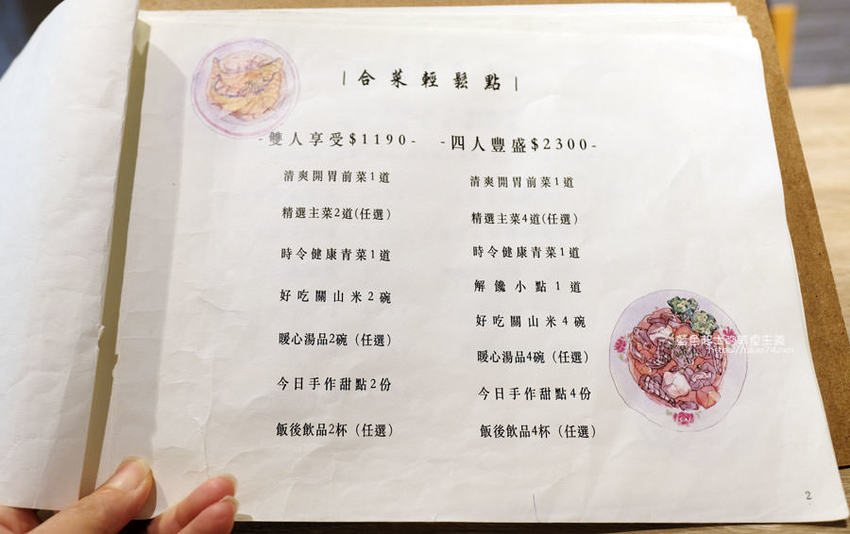 |合菜輕鬆點|
-雙人享受$1190-
清爽開胃前菜1道
精選主菜2道(任選)
時令健康青菜1道
好吃關山米2碗
暖心湯品2碗(任選)
今日手作甜點2份
飯後飲品2杯(任選)
-四人豐盛$2300-
清爽開胃前菜1道
精選主菜4道(任選)
時令健康青菜1道
解饞小點1道
好吃關山米4碗
暖心湯品4碗(任選)
今日手作甜點4份
飯後飲品4杯(任選)
2